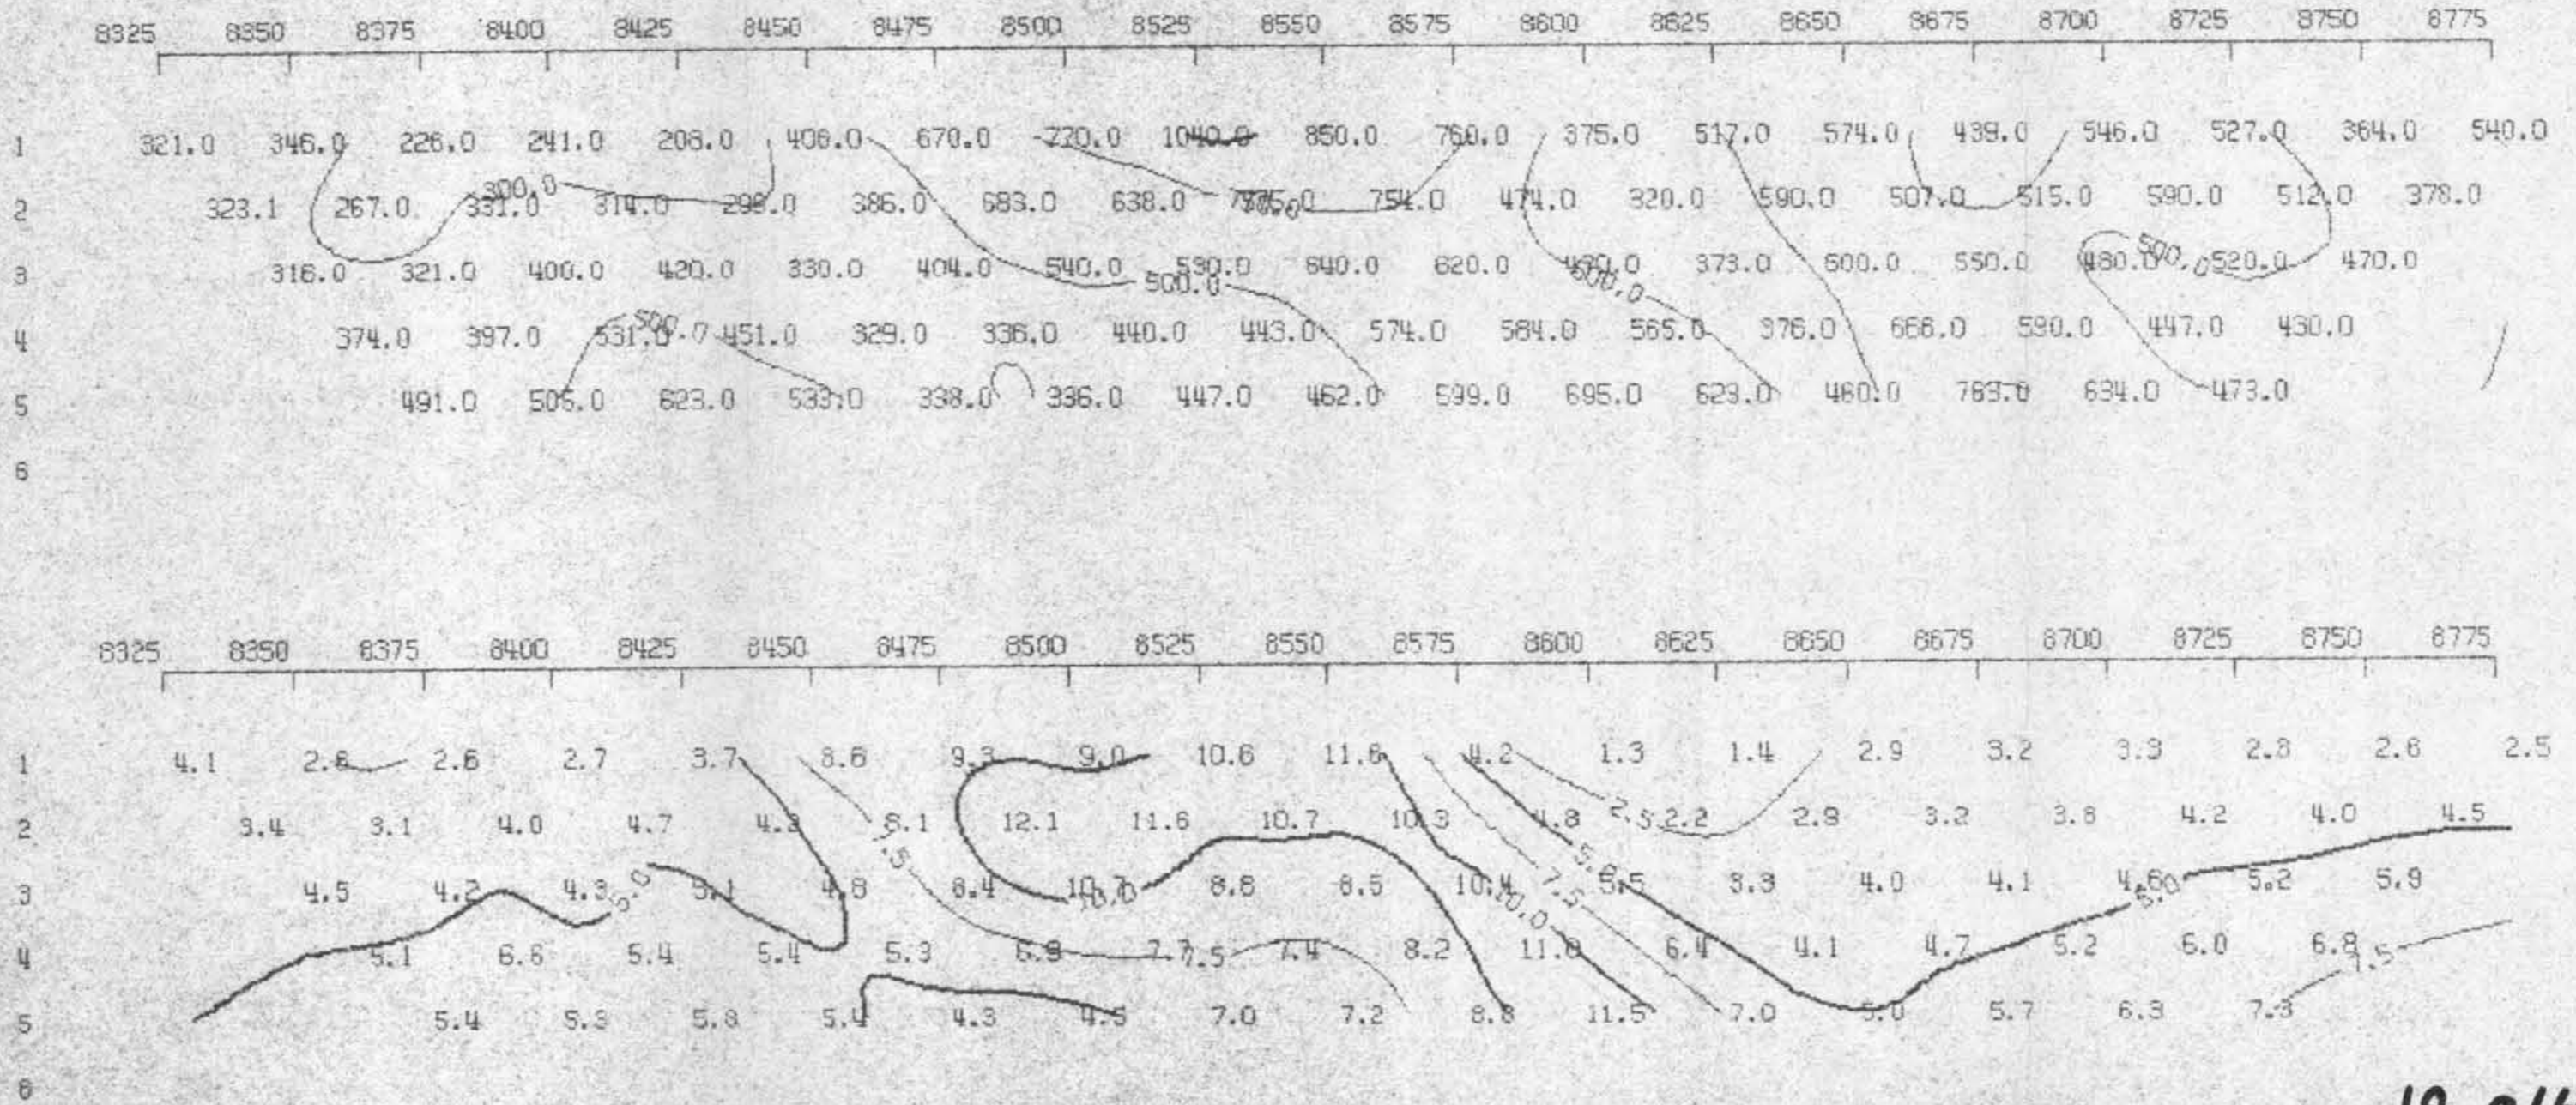 8325 8350 8375 8400 8425 8450 8475 8500 8525 8550 8575 8600 8625 8650 8675 8700 8725 8750 8775
1 321.0 346.0 226.0 241.0 208.0 406.0 670.0 720.0 1040.0 850.0 760.0 375.0 517.0 574.0 439.0 546.0 527.0 364.0 540.0
300.0
2 323.1 267.0 331.0 314.0 299.0 386.0 683.0 638.0 754.0 474.0 320.0 590.0 507.0 515.0 590.0 512.0 378.0
3 316.0 321.0 400.0 420.0 330.0 404.0 540.0 530.0 640.0 620.0 373.0 600.0 550.0 480.0 500.0 520.0 470.0
500.0 500.0
4 374.0 397.0 531.0 500.0 451.0 329.0 336.0 440.0 443.0 574.0 584.0 565.0 376.0 666.0 590.0 447.0 430.0
5 491.0 505.0 623.0 533.0 338.0 336.0 447.0 462.0 599.0 695.0 623.0 460.0 763.0 634.0 473.0
6
8325 8350 8375 8400 8425 8450 8475 8500 8525 8550 8575 8600 8625 8650 8675 8700 8725 8750 8775
1 4.1 2.6 2.6 2.7 3.7 8.6 9.3 9.0 10.6 11.6 4.2 1.3 1.4 2.9 3.2 3.3 2.8 2.6 2.5
2 3.4 3.1 4.0 4.7 4.3 8.1 12.1 11.6 10.7 10.3 4.8 2.5 2.2 2.9 3.2 3.8 4.2 4.0 4.5
7.5 5.0
3 4.5 4.2 4.3 5.0 5.1 4.8 8.4 10.7 10.0 8.8 8.5 10.4 10.0 7.5 5.5 3.3 4.0 4.1 4.6 5.0 5.2 5.9
4 5.1 6.6 5.4 5.4 5.3 6.9 7.7 7.5 7.4 8.2 11.0 6.4 4.1 4.7 5.2 6.0 6.8 7.5
5 5.4 5.3 5.8 5.4 4.3 4.5 7.0 7.2 8.8 11.5 7.0 5.0 5.7 6.3 7.3
6